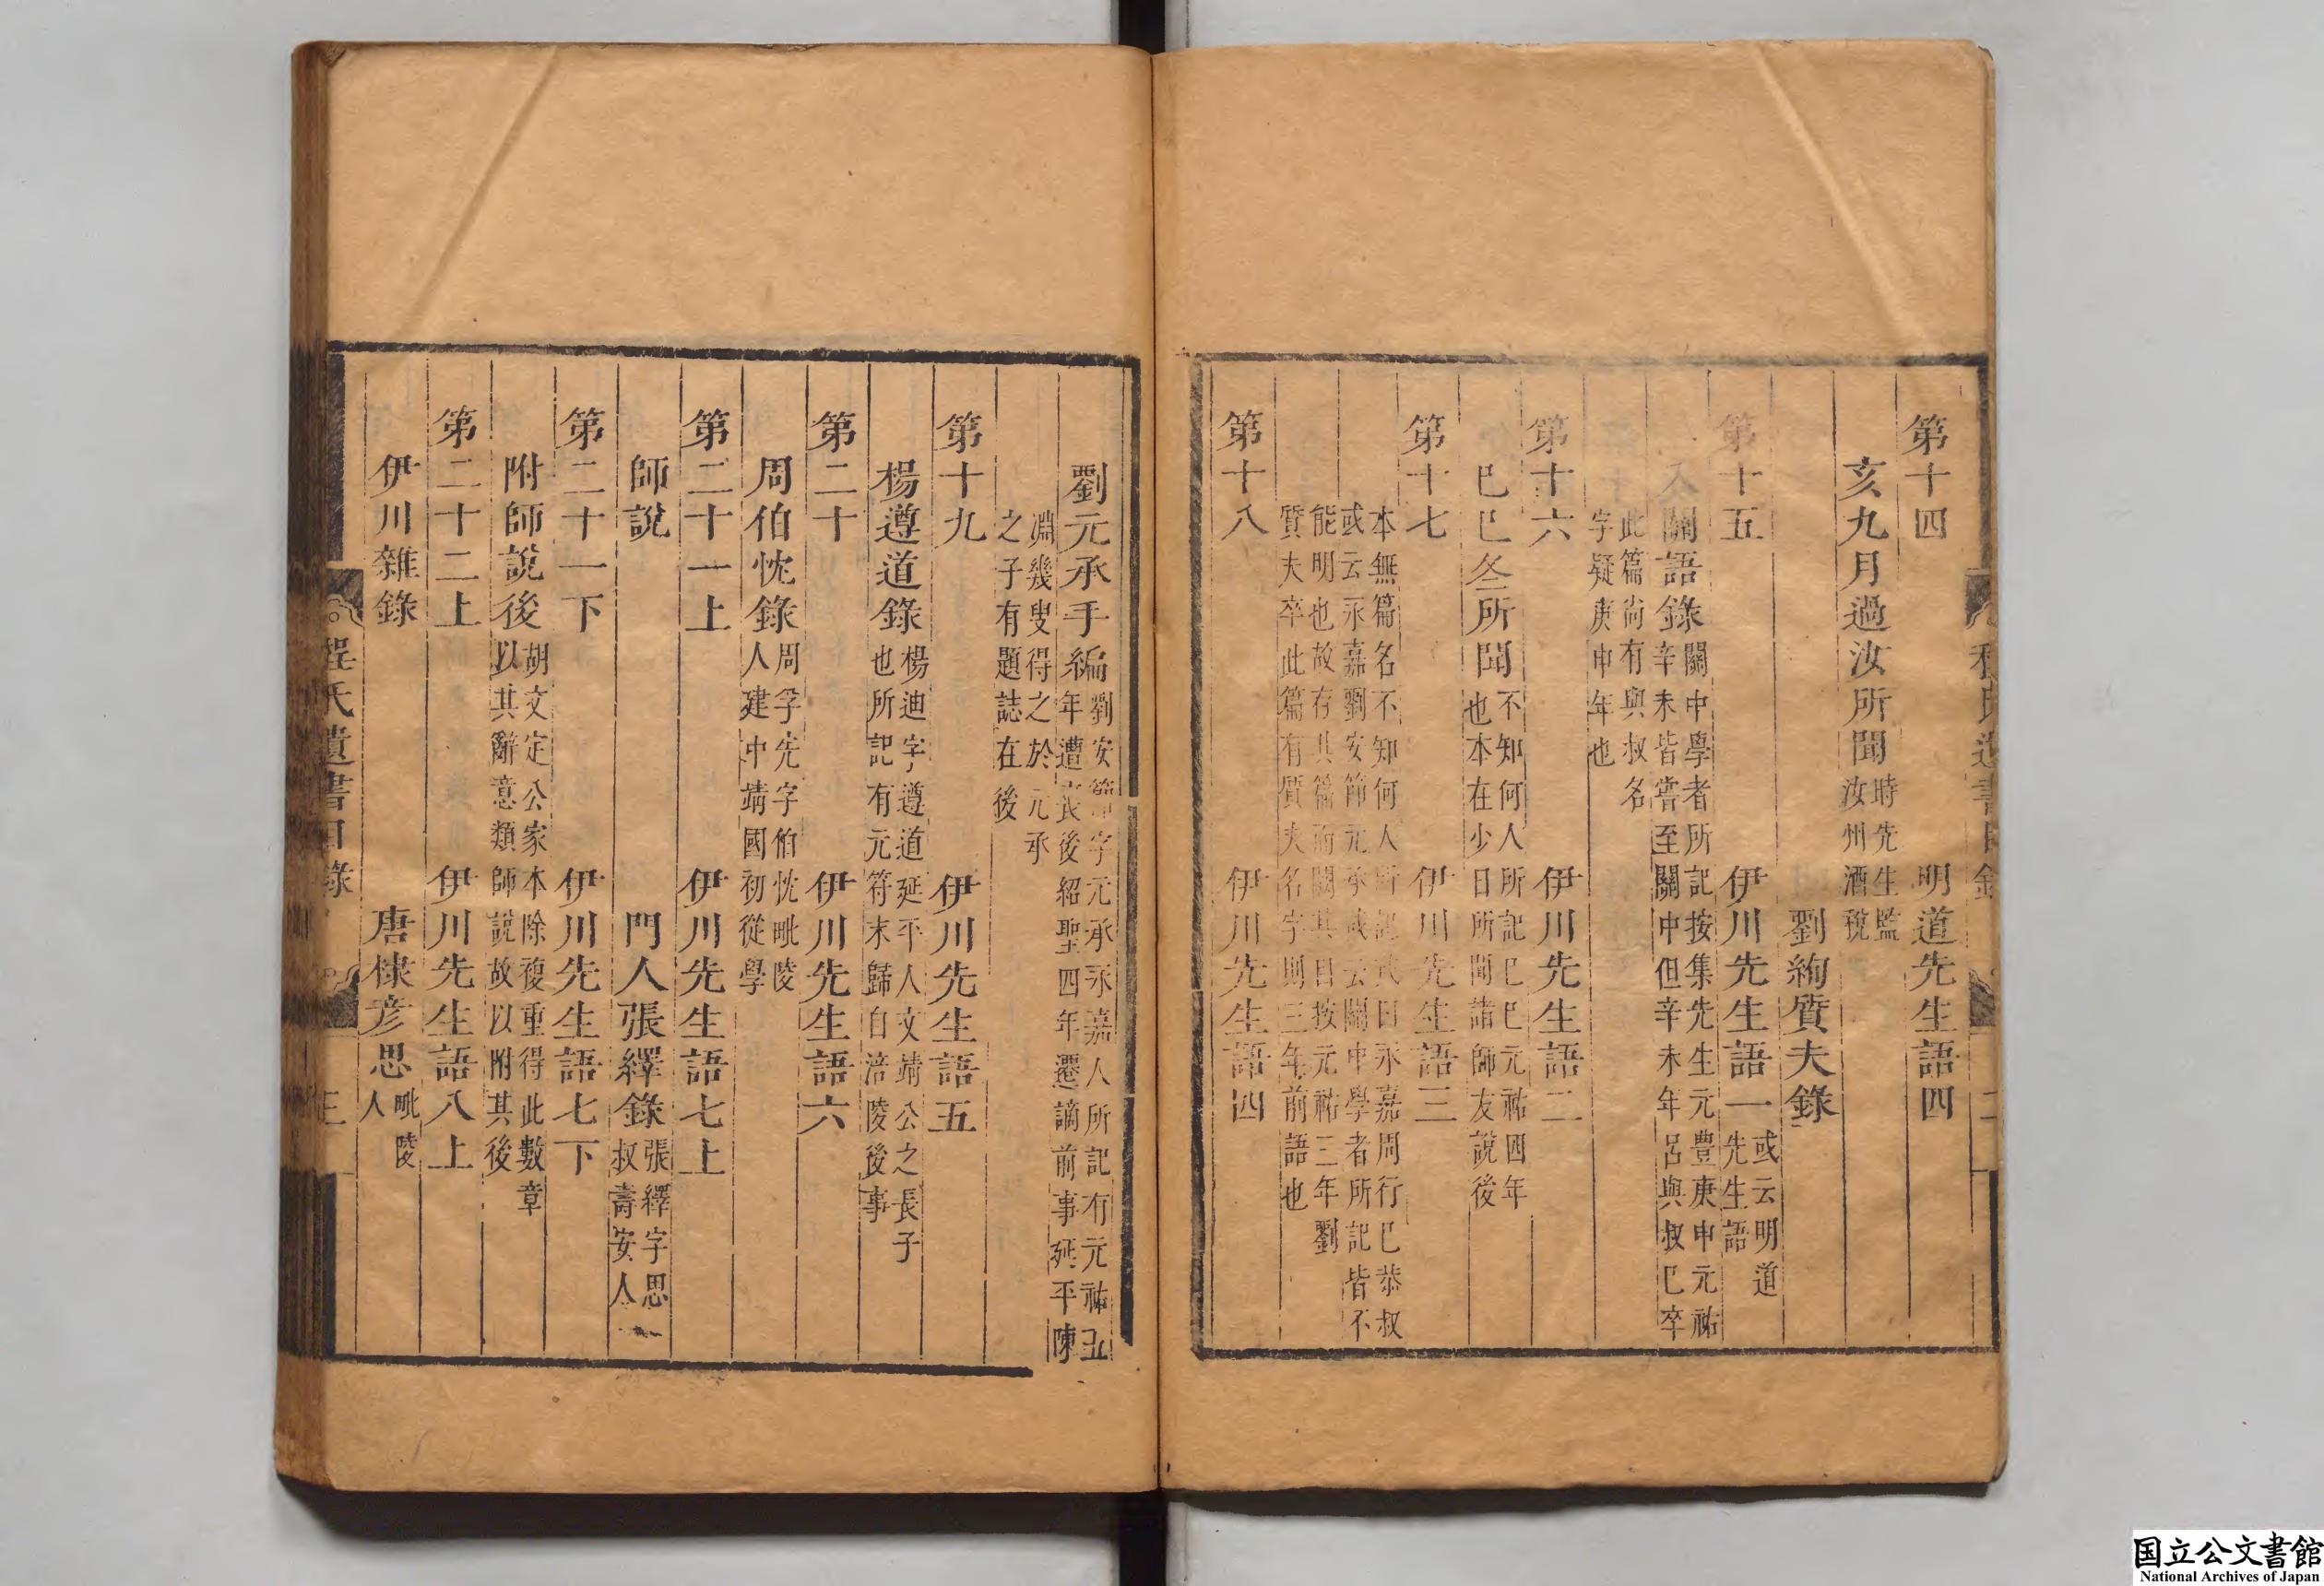 第十四　明道先生語四
亥九月過汝所聞時先生監
汝州酒稅
劉絢質夫錄
第十五　伊川先生語一或云明道
先生語
入關語錄關中學者所記按集先生元豐庚申元祐
辛未皆嘗至關中但辛未年呂與叔已卒
此篇尚有與叔名
字疑庚申年也
第十六　伊川先生語二
巳巳冬所聞不知何人所記巳巳元祐四年
也本在少日所聞諸師友說後
第十七　伊川先生語三
本無篇名不知何人所記或曰永嘉周行巳恭叔
或云永嘉劉安節元承或云關中學者所記皆不
能明也故存其篇而闕其目按元祐三年劉
質夫卒此篇有質夫名字則三年前語也
第十八　伊川先生語四
劉元承手編劉安節字元承永嘉人所記有元祐五
年遭喪後紹聖四年遷謫前事延平陳
淵幾叟得之於元承
之子有題誌在後
第十九　伊川先生語五
楊遵道錄楊迪字遵道延平人文靖公之長子
也所記有元符末歸自涪陵後事
第二十　伊川先生語六
周伯忱錄周孚先字伯忱毗陵
人建中靖國初從學
第二十一上　伊川先生語七上
師說　門人張繹錄張繹字思
叔壽安人
第二十一下　伊川先生語七下
附師說後胡文定公家本除複重得此數章
以其辭意類師說故以附其後
第二十二上　伊川先生語八上
伊川雜錄　唐棣彥思毗陵
人
程氏遺書目錄　三
国立公文書館
National Archives of Japan